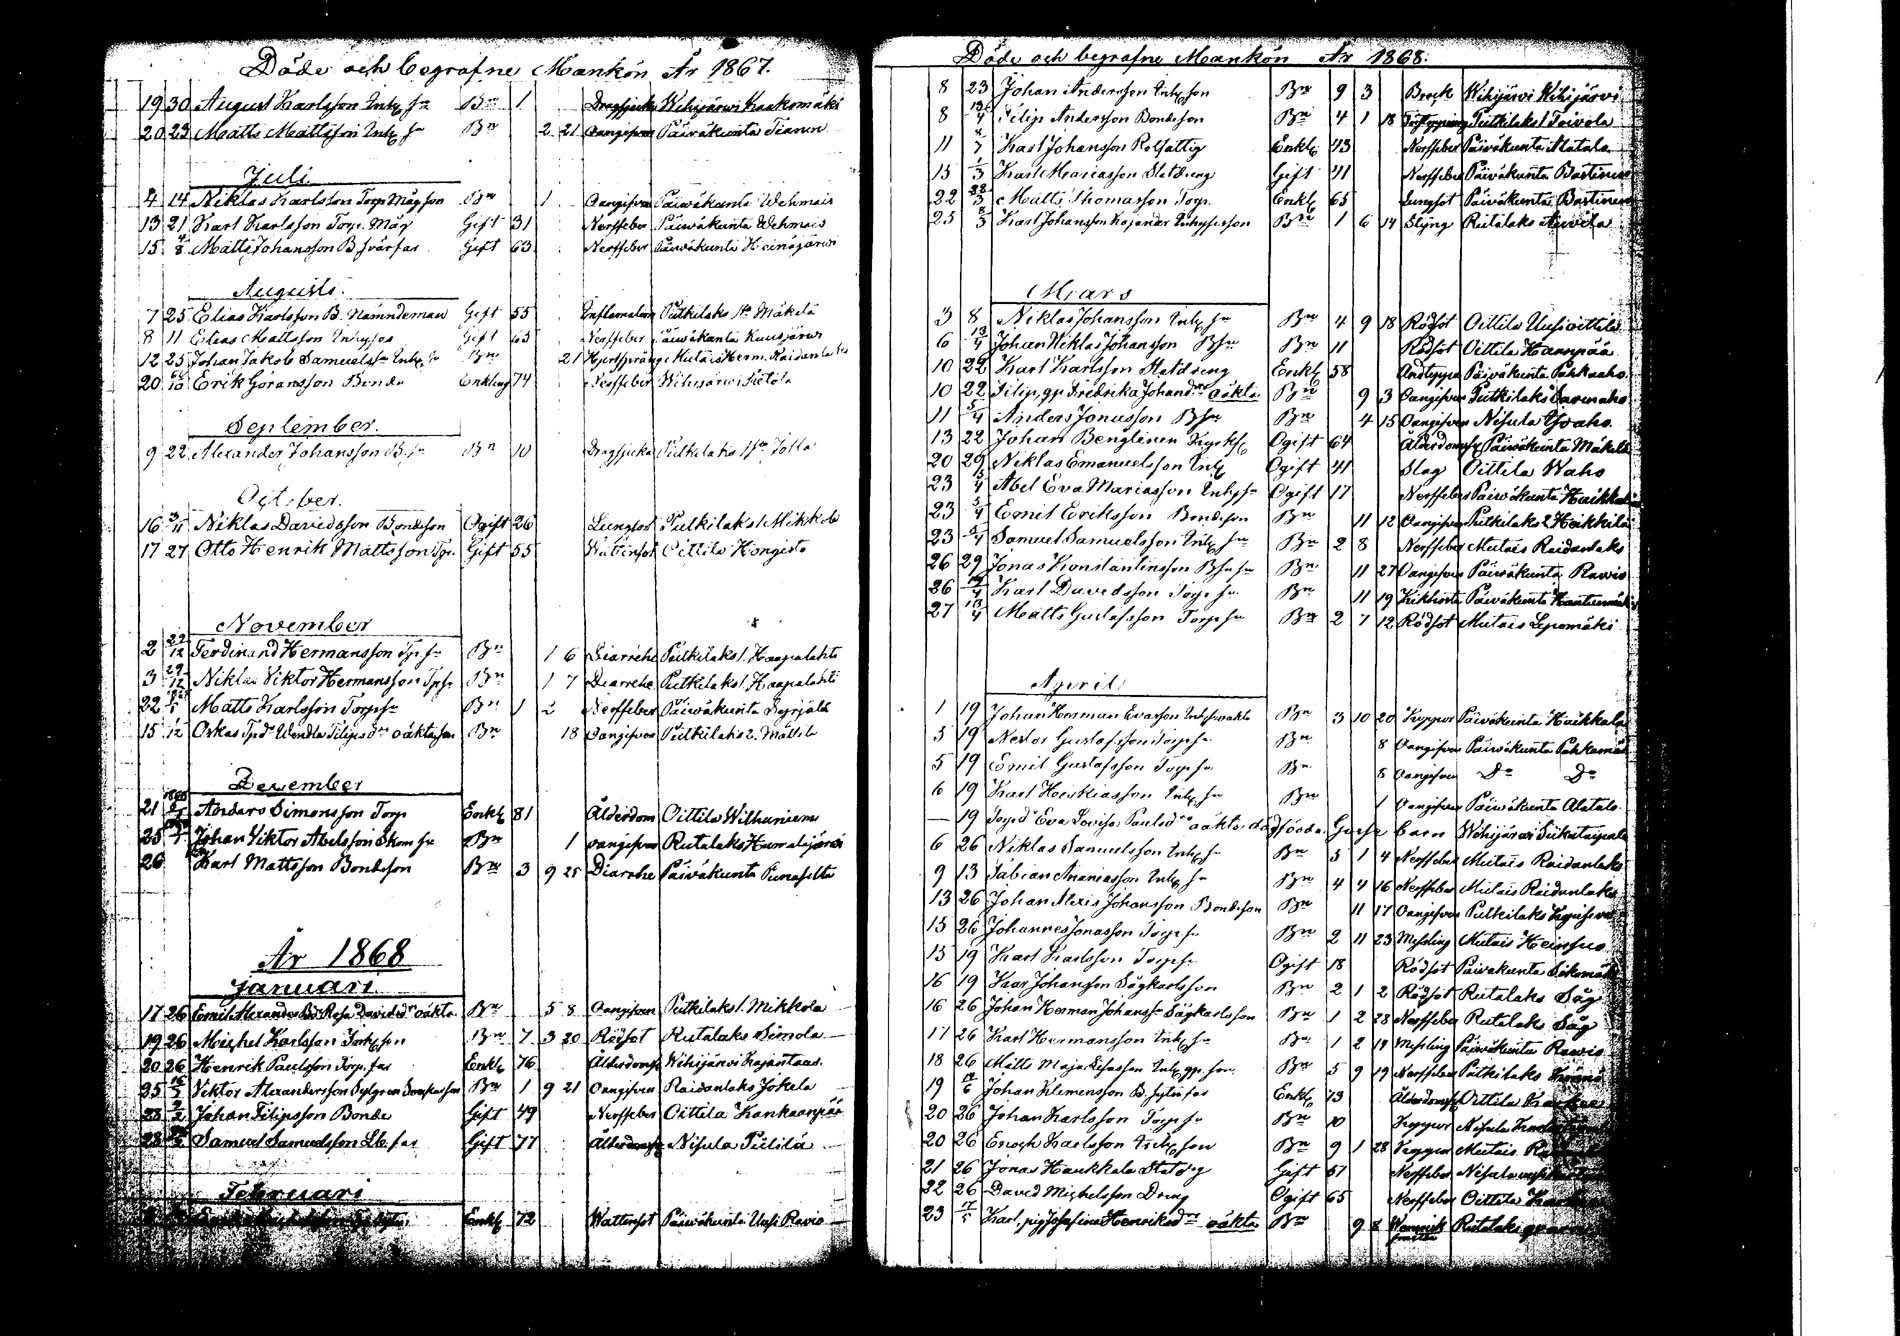 Döde och begrafne Mankön År 1867.
19 30 August Karlsson Inh. sn Bn 1 Dragsjuka Wihijärwi Kaakomäki
20 23 Matts Mattsson Inh. sn Bn 2 21 Oangifven Päiwäkunta Tianen
Juli
4 14 Niklas Karlsson Torp. Mågson Bn 1 Oangifven Päiwäkunta Wehmais
13 21 Karl Karlsson Torp. Måg Gift 31 Nerffeber Päiwäkunta Wehmais
15 4/8 Matts Johansson B. svärfar Gift 63 Nerffeber Päiwäkunta Heinäjärwi
Augusti.
7 25 Elias Karlsson B. Nämndeman Gift 55 Inflamation Putkilaks Mäkelä
8 11 Elias Mattsson Gift 65 Nerffeber Päiwäkunta Kuusjärwi
12 25 Johan Jakob Samuelsson Inh. sn Bn 21 Mutais Raidanlaks
20 Erik Göransson Bonde Enkling 74 Nerffeber Wihijärwi Pietola
September.
9 22 Alexander Johansson B. sn Bn 10 Dragsjuka Putkilaks Jolla
October.
16 3/11 Niklas Davidsson Bondeson Ogift 26 Lungsot Putkilaks 1 Mikkola
17 27 Otto Henrik Mattsson Tp. Gift 55 Wattensot Oittila Hongisto
November
2 22/12 Ferdinand Hermansson Tp. sn Bn 1 6 Diarrehe Putkilaks 1. Haapalahti
3 29/12 Niklas Viktor Hermansson Tp. sn Bn 1 7 Diarrehe Putkilaks 1. Haapalahti
22 Matts Karlsson Torp. sn Bn 1 2 Nerffeber Päiwäkunta Syrjälä
15 1/12 Oskar Wendla Filipsdr oäkta son Bn 18 Oangifven Putkilaks 2. Mattila
December
21 Anders Simonsson Torp. Enkl. 81 Ålderdom Oittila Wilhuniemi
25 Johan Viktor Abelsson Skom. sn Bn 1 oangifven Rutalaks Humalajärwi
26 Karl Mattsson Bondeson Bn 3 9 25 Diarrhe Päiväkunta Punasilta
År 1868
Januari
17 26 Emil Alexander Rosa Davidsdr oäkta Bn 5 8 Oangifven Putkilaks 1. Mikkola
19 26 Michel Karlsson Inh. son Bn 7 3 20 Rödsot Rutalaks Simola
20 26 Henrik Paulsson Torp. far Enkl. 76 Ålderdomsf. Wihijärvi Kajantaus
25 Viktor Alexandersson Bn 1 9 21 Oangifven Raidanlaks Jokela
28 9/2 Johan Filipsson Bonde Gift 49 Nerffeber Oittila Kankaanpää
28 Samuel Samuelsson far Gift 77 Ålderdomsf. Nisula Piililä
Februari
Enkl. 72 Wattensot Päiwäkunta Uusi Rawio
Döde och begrafne Mankön År 1868.
8 23 Johan Andersson Inh. son Bn 9 3 Brock Wihijärvi Wihijärvi
8 13/4 Filip Andersson Bondeson Bn 4 1 18 Putkilaks 1 Toivola
11 8/7 Karl Johansson Rotfattig Enkl. 43 Nerffeber Päiväkunta Alatalo
15 1/3 Karl Mariasson Statdreng Gift 41 Nerffeber Päiväkunta Bastinen
22 22/3 Matts Thomasson Torp. Enkl. 65 Lungsot Päiväkunta Bastinen
25 8/3 Karl Johansson Kajander Bn 1 6 14 Styng Rutalaks Auvila
Mars
3 8 Niklas Johansson Inh. sn Bn 4 9 18 Rödsot Oittila Uusioittila
6 13/4 Johan Niklas Johansson B. sn Bn 11 Rödsot Oittila Haanpää
10 22 Karl Karlsson Statdreng Enkl. 58 Andtäppa Päiväkunta Pahkaaho
10 22 Filip, gp. Fredrika Johansdr oäkta Bn 9 3 Oangifven Putkilaks Savenaho
11 5/4 Anders Jonasson B. sn Bn 4 15 Oangifven Nisula Ylvaho.
13 22 Johan Benglenen Kyrkh. Ogift 64 Ålderdomsf. Päiväkunta Mäkelä
20 29 Niklas Emanuelsson Inh. Ogift 41 Slag Oittila Waho
23 5/4 Abel Eva Mariasson Inh. sn Ogift 17 Nerffeber Päiväkunta Haikkala
23 5/4 Emil Eriksson Bondeson Bn 11 12 Oangifven Putkilaks 2 Heikkilä
23 5/4 Samuel Samuelsson Inh. sn Bn 2 8 Nerffeber Mutais Raidanlaks
26 29 Jonas Konstantinsson B. sn Bn 11 27 Oangifven Päiväkunta Rawio
26 19/4 Karl Davidsson Torp. sn Bn 11 19 Kikhosta Päiväkunta
27 13/4 Matts Gustafsson Torp. sn Bn 2 7 12 Rödsot Mutais Lepomäki
April
1 19 Johan Herman Evasson oäkta Bn 3 10 20 Koppor Päiväkunta Haikkala
5 19 Nestor Gustafsson Torp. sn Bn 8 Oangifven Päiwäkunta
5 19 Emil Gustafsson Torp. sn Bn 8 Oangifven Do Do
6 19 Karl Heskiasson Inh. sn Bn 1 Oangifven Päiwäkunta Alatalo
— 19 Eva Lovisa Paulsdr oäkta dödfödda barn Wihijärvi
6 26 Niklas Samuelsson Inh. sn Bn 5 1 4 Nerffeber Mutais Raidanlaks
9 13 Fabian Ananiasson Inh. sn Bn 4 4 16 Nerffeber Mutais Raidanlaks
13 26 Johan Alexis Johansson Bondeson Bn 11 17 Oangifven Putkilaks
15 26 Johannes Jonasson Torp. sn Bn 2 11 23 Messling Mutais Heinsuo
15 19 Karl Karlsson Torp. sn Ogift 18 Rödsot Päiväkunta
16 19 Isaac Johansson Sågkarlsson Bn 2 1 2 Rödsot Rutalaks Såg
16 26 Johan Herman Johansson Sågkarlsson Bn 1 2 28 Nerffeber Rutalaks Såg
17 26 Karl Hermansson Inh. sn Bn 1 2 19 Messling Päiwäkunta Rawio
18 26 Matts Maja Lisasson Inh. gp. son Bn 5 9 19 Nerffeber Putkilaks
19 Johan Klemensson B. far Enkl. 73 Ålderdomsf. Oittila
20 26 Johan Karlsson Torp. sn Bn 10 Koppor Nisula
20 26 Enoch Karlsson Inh. son Bn 9 1 28 Koppor Mutais
21 26 Jonas Haukkala Statdrg Gift 57 Nerffeber Nisula
22 26 David Michelsson Dreng Ogift 65 Nerffeber Oittila
23 17/5 Karl, pig. Josefina Henriksdr oäkta Bn 9 8 Rutalaks